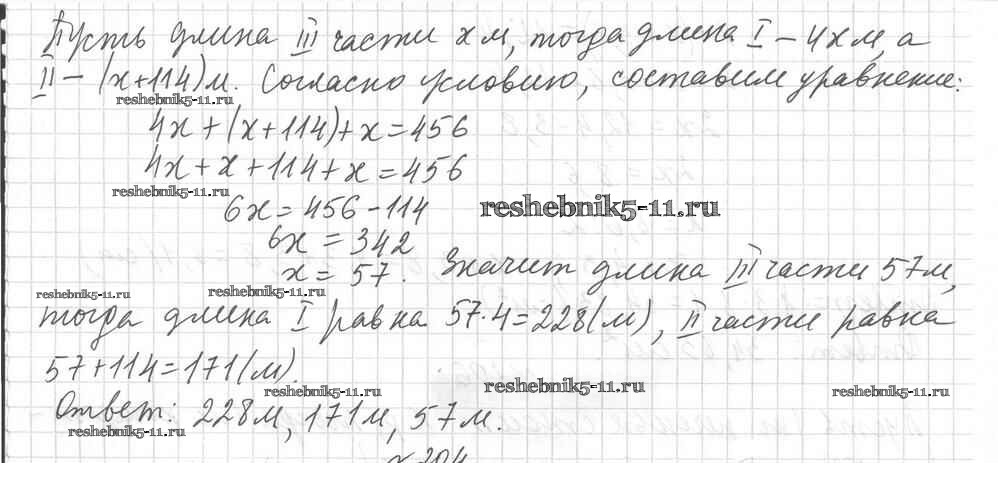 Пусть длина III части x м, тогда длина I – 4x м, а
II – (x+114) м. Согласно условию, составим уравнение:
reshebnik5-11.ru
4x+(x+114)+x=456
4x+x+114+x=456
reshebnik5-11.ru
6x=456-114
reshebnik5-11.ru
6x=342
x=57. Значит длина III части 57 м,
reshebnik5-11.ru
reshebnik5-11.ru
тогда длина I равна 57·4=228(м), II части равна
57+114=171(м).
reshebnik5-11.ru
reshebnik5-11.ru
reshebnik5-11.ru
Ответ: 228м, 171м, 57м.
reshebnik5-11.ru